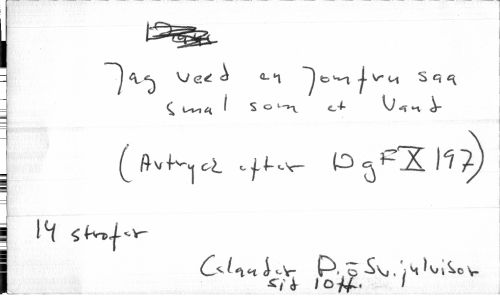 Jag veed en Jomfru saa
smal som et Vand
(Avtryck efter DgF X 197)
14 strofer
Celander D. o Sv. julvisor
sid 10 ff.